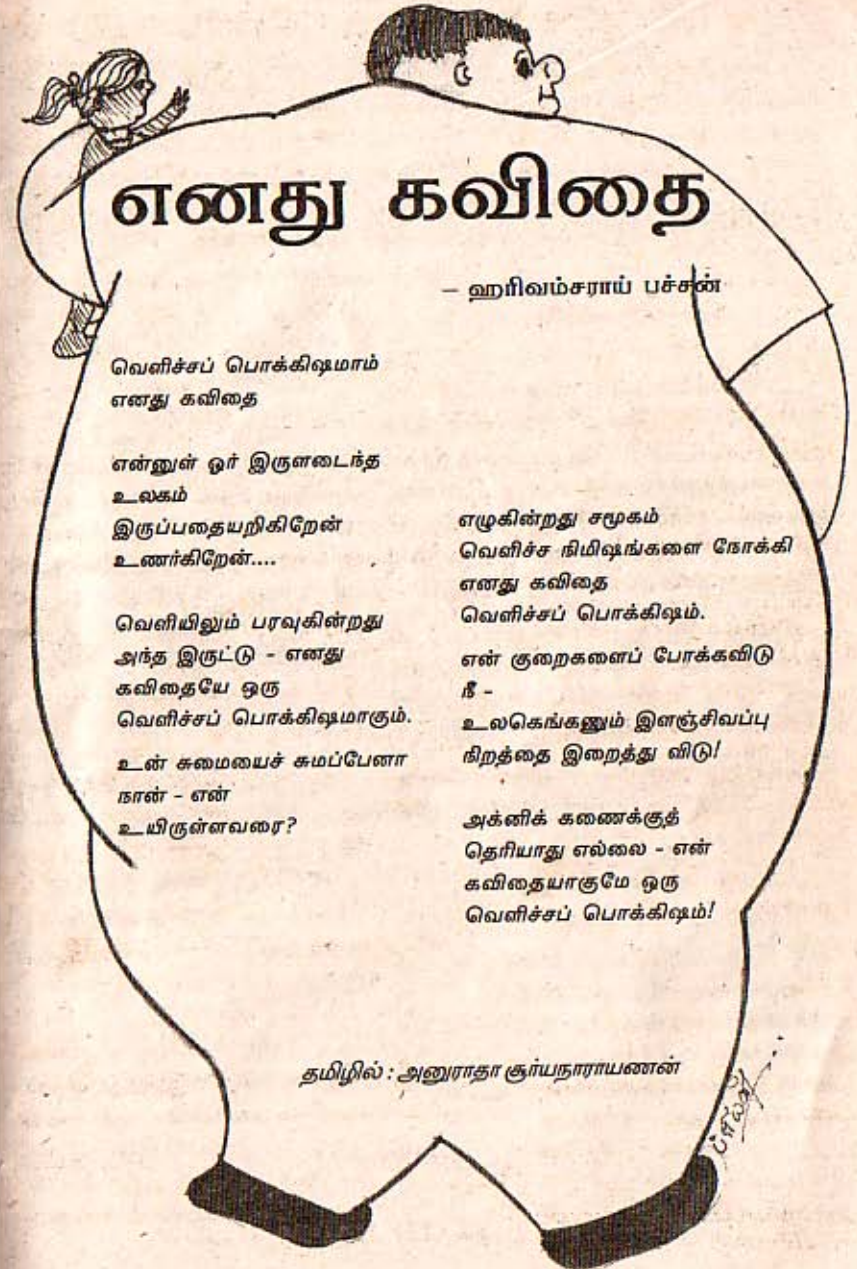 எனது கவிதை
– ஹரிவம்சராய் பச்சன்
வெளிச்சப் பொக்கிஷமாம்
எனது கவிதை
என்னுள் ஓர் இருளடைந்த
உலகம்
இருப்பதையறிகிறேன்
உணர்கிறேன்....
வெளியிலும் பரவுகின்றது
அந்த இருட்டு - எனது
கவிதையே ஒரு
வெளிச்சப் பொக்கிஷமாகும்.
உன் சுமையைச் சுமப்பேனா
நான் - என்
உயிருள்ளவரை?
எழுகின்றது சமூகம்
வெளிச்ச நிமிஷங்களை நோக்கி
எனது கவிதை
வெளிச்சப் பொக்கிஷம்.
என் குறைகளைப் போக்கவிடு
நீ -
உலகெங்கணும் இளஞ்சிவப்பு
நிறத்தை இறைத்து விடு!
அக்னிக் கணைக்குத்
தெரியாது எல்லை - என்
கவிதையாகுமே ஒரு
வெளிச்சப் பொக்கிஷம்!
தமிழில் : அனுராதா சூர்யநாராயணன்